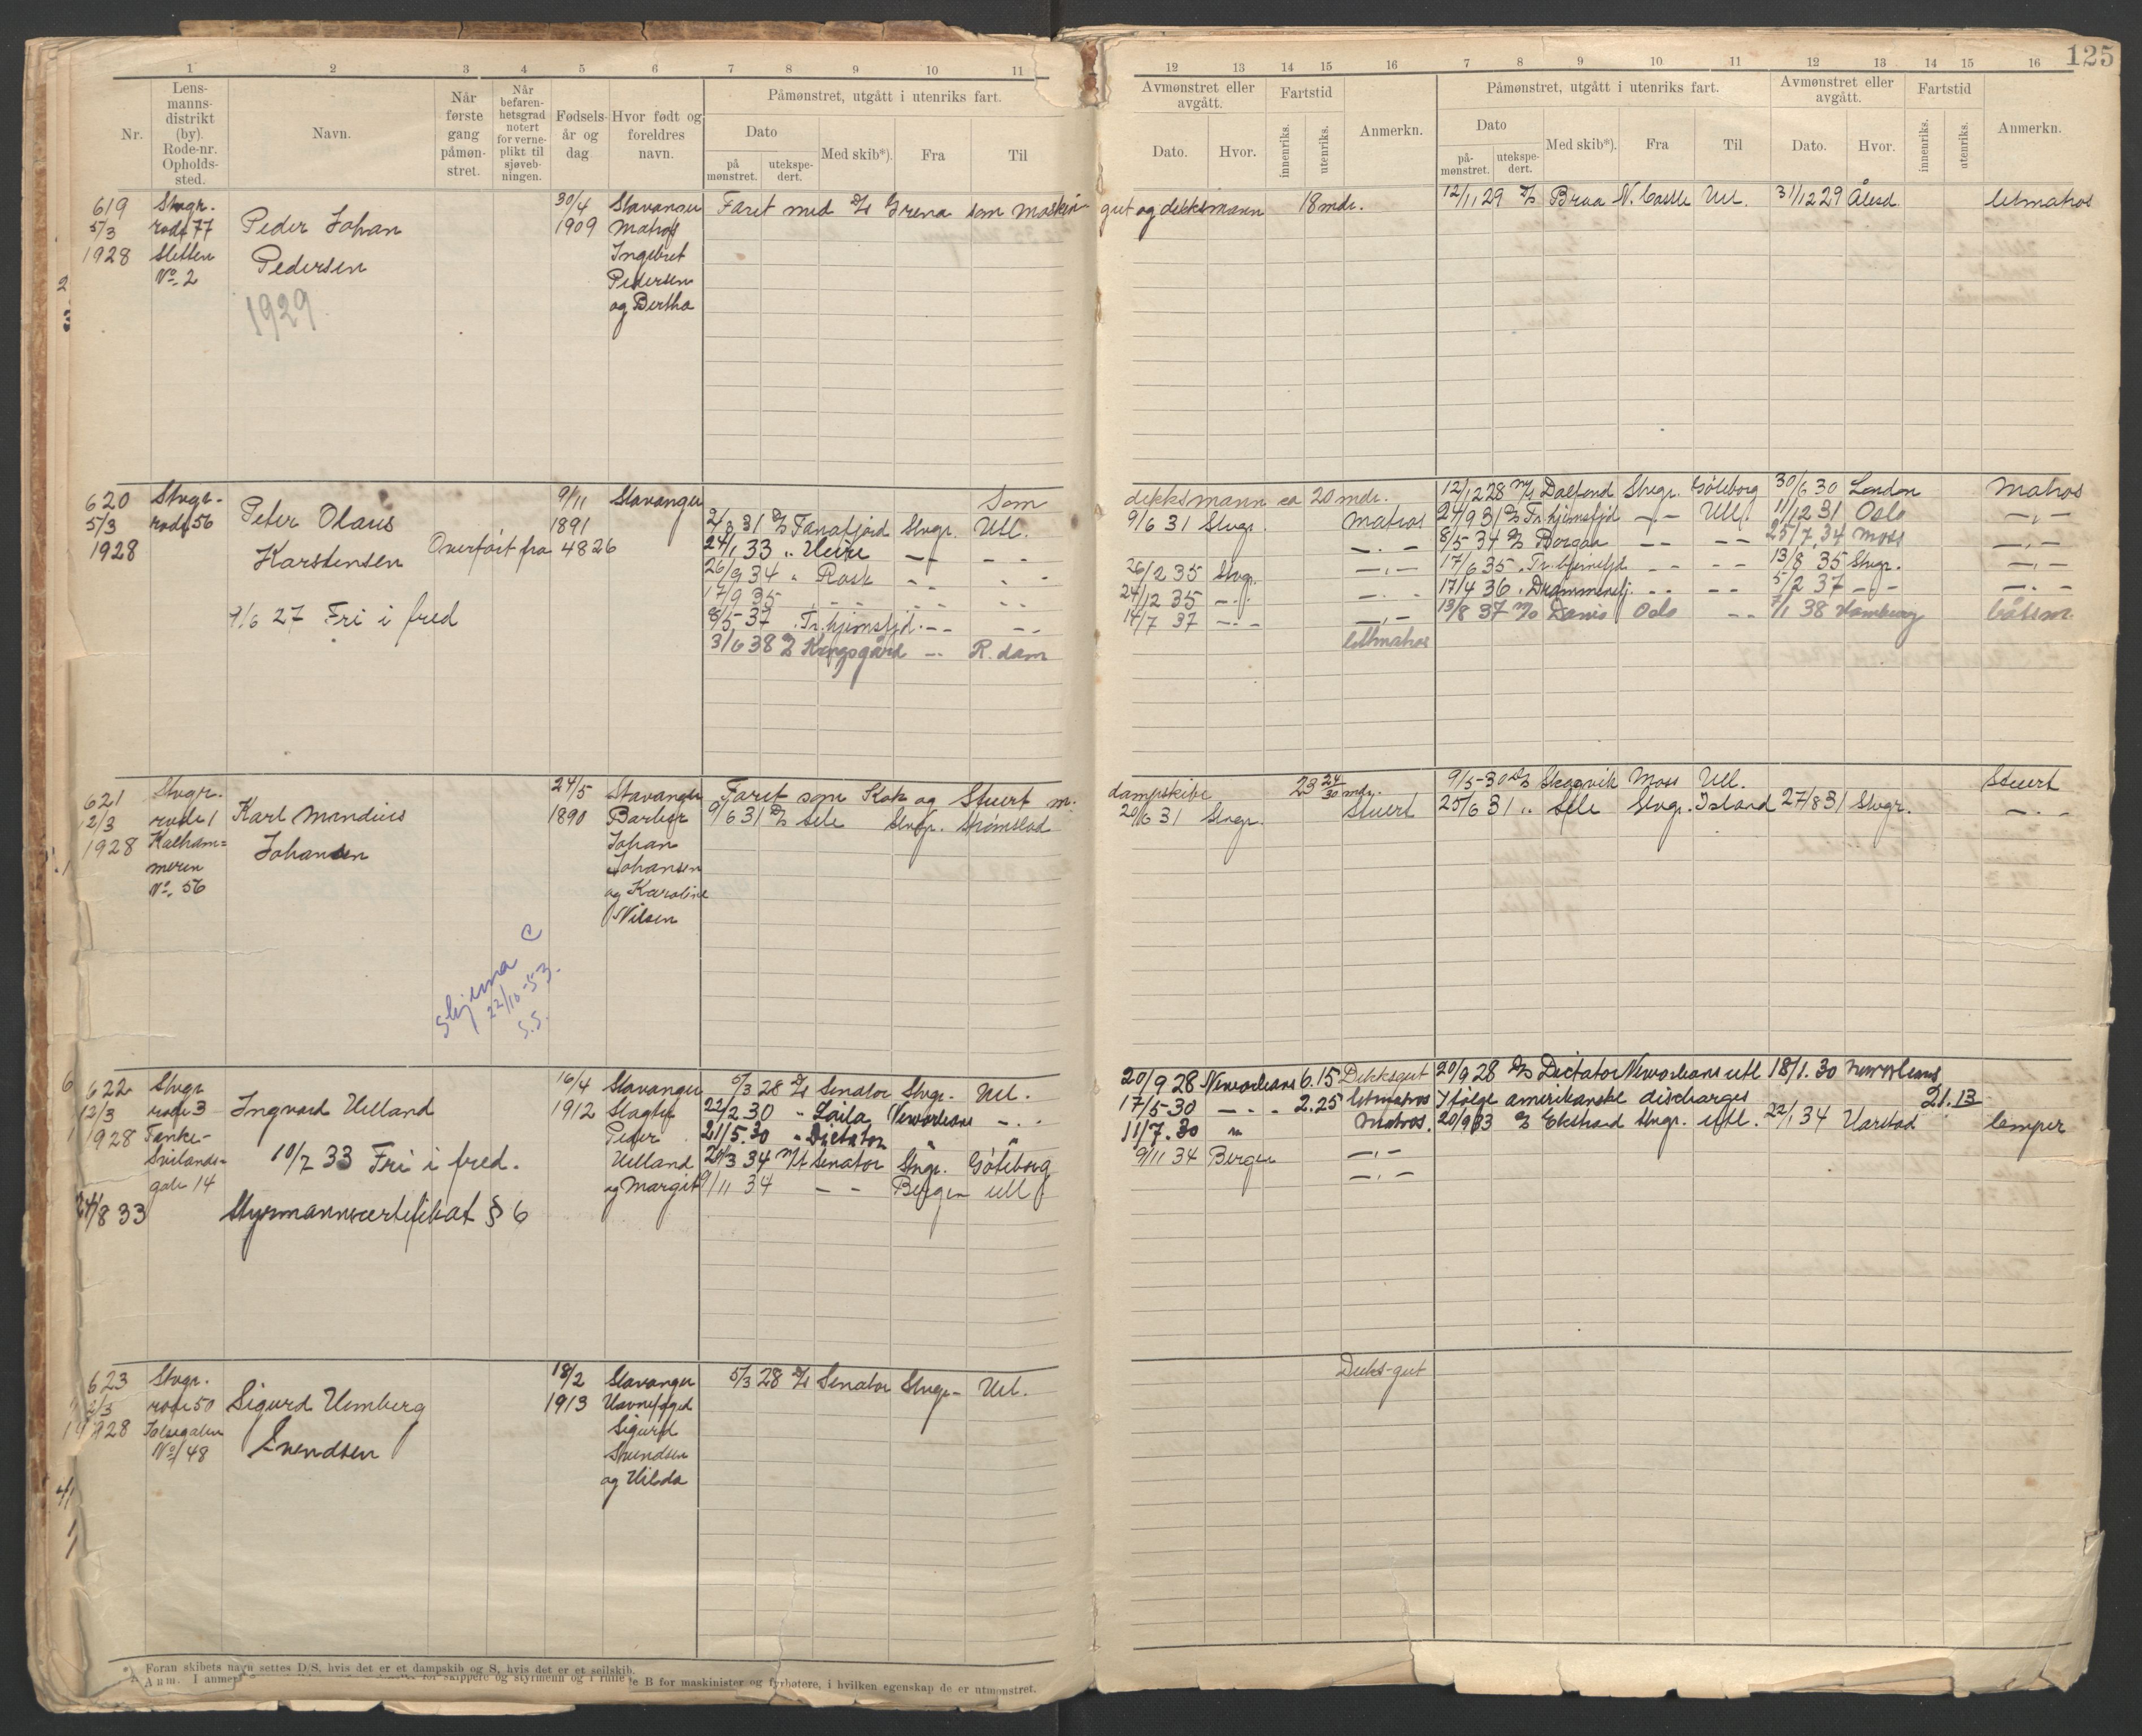 125
1 2 3 4 5 6 7 8 9 10 11
12 13 14 15 16 7 8 9 10 11 12 13 14 15 16
Nr.
Lens-
manns-
distrikt
(by).
Rode-nr.
Opholds-
sted.
Navn.
Når
første
gang
påmøn-
stret.
Når
befaren-
hetsgrad
notert
for verne-
plikt til
sjøveb-
ningen.
Fødsels-
år og
dag
Hvor født og
foreldres
navn.
Påmønstret, utgått i utenriks fart.
Dato
på
mønstret.
utekspe-
dert.
Med skib*).
Fra
Til
Avmønstret eller
avgått.
Dato.
Hvor.
Fartstid
innenriks.
utenriks.
Anmerkn.
Påmønstret, utgått i utenriks fart.
Dato
på-
mønstret.
utekspe-
dert.
Med skib*).
Fra
Til
Avmønstret eller
avgått.
Dato.
Hvor.
Fartstid
innenriks.
utenriks.
Anmerkn.
619
5/3
1928
Stvgr.
rode 77
Sletten
No. 2
Peder Johan
Pedersen
1929
30/4
1909
Stavanger
Matros
Ingebret
Pedersen
og Bertha
Faret med D/S Grena som maskin
gut og dekksmann 18 mdr.
12/11 29 D/S Braa N. Castle Utl. 31/12 29 Ålesd. letmatros
620
5/3
1928
Stvgr.
rode 56
Peter Olaus
Karstensen
Overført fra 4826
9/6 27 Fri i fred
9/11
1891
Stavanger
Som
dekksmann ca 20 mdr.
12/12 28 M/S Dalfond Stvgr. Göteborg 30/6 30 London Matros
2/3 31 D/S Fanafjord Stvgr. Utl.
9/6 31 Stvgr. Matros
24/9 31 D/S Tr.hjemsfjd — Utl. 11/12 31 Oslo —.—
24/1 33 „ Heire — —
—.—
8/5 34 D/S Borgaa — — 25/7 34 Moss —.—
26/9 34 „ Rask — —
26/2 35 Stvgr. —.—
17/6 35 . Tr.hjemsfjd — — 13/8 35 Stvgr. —.—
17/9 35 — — — —
24/12 35 —.— —.—
17/4 36 . Drammensfj. — — 5/2 37 — — —.—
8/5 37 . Tr.hjemsfjd. — —
14/7 37 —.— —.—
13/8 37 M/S Danis Oslo — 7/1 38 Hamburg båtsm.
3/6 38 D/S Kongsgård — R.dam
lettmatros
621
12/3
1928
Stvgr.
rode 1
Kalham=
meren
No. 56
Karl Mandius
Johansen
24/5
1890
Stavanger
Barber
Johan
Johansen
og Karoline
Nilsen
Faret som Kok og Stuert m.
dampskibe 23 24/30 mdr.
9/5-30 D/S Skagvik Moss Utl. Stuert
9/6 31 D/S Sele Stvgr. Strømstad
20/6 31 Stvgr. Stuert
25/6 31 „ Sele Stvgr. Island 27/8 31 Stvgr. —.—
Skjema C
22/10-53.
S.S.
622
12/3
1928
Stvgr
rode 3
Tanke-
Svilands=
gate 14
Ingvard Helland
10/7 33 Fri i fred.
24/8 33 Styrmannscertifikat § 6
16/4
1912
Stavanger
Slagter
Peder
Helland
og Margit
5/3 28 D/S Senator Stvgr. Utl.
20/9 28 Neworleans 6.15 Dekksgut
20/9 28 D/S Dictator Neworleans utl 18/1.30 Neworleans
22/2.30 „ Laila Neworleans —.—
17/5-30 —.— 2.25 letmatros
Ifølge amerikanske discharges 21.13
21/5.30 „ Dictator „ „
11/7.30 „ Matros.
20/9 33 D/S Ekstrand Stvgr. Utl. 22/1 34 Harstad lemper
20/3 34 M/t Senator Stvgr. Göteborg
9/11 34 Bergen —.—
9/11 34 — — Bergen utl
—.—
623
12/3
1928
Stvgr.
rode 50
No 48
Sigurd Hemberg
Svendsen
18/2
1913
Stavanger
Havnefoged
Sigurd
Svendsen
og Hilda
5/3 28 D/S Senator Stvgr. Utl.
Dekks-gut
*) Foran skibets navn settes D/S, hvis det er et dampskib og S, hvis det er et seilskib.
Anm. I anmer
for skippere og styrmenn og i rulle
B for maskinister og fyrbøtere, i hvilken egenskap de er utmønstret.